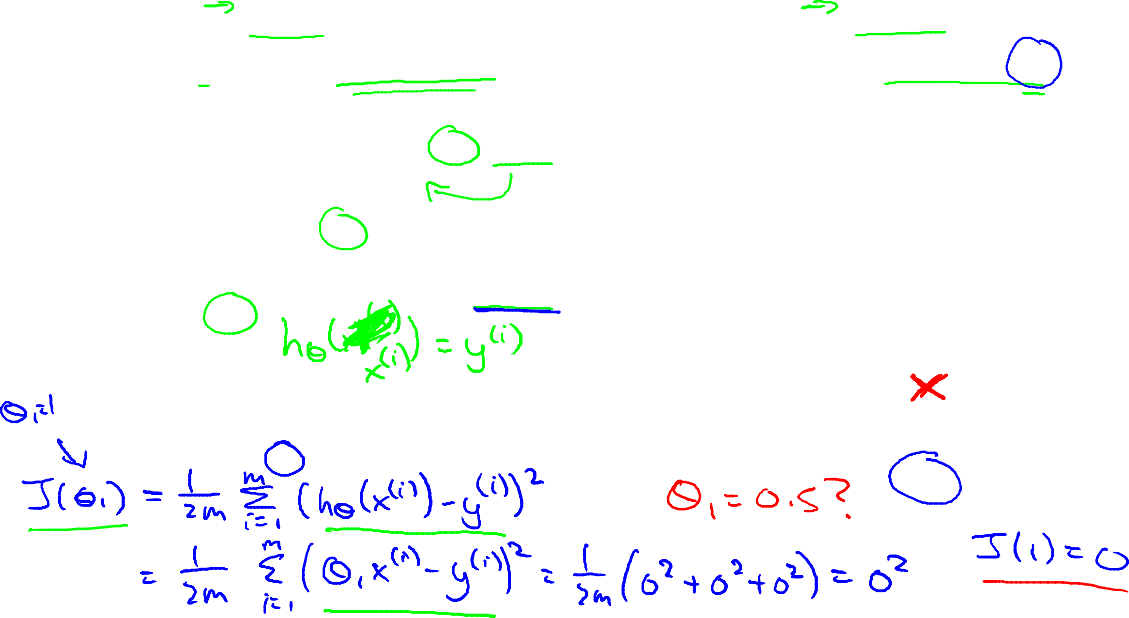 hθ(x⁽ⁱ⁾) = y⁽ⁱ⁾
θ₁=1
J(θ₁) = 1/2m Σᵢ₌₁ᵐ (hθ(x⁽ⁱ⁾) - y⁽ⁱ⁾)²
θ₁ = 0.5?
= 1/2m Σᵢ₌₁ᵐ (θ₁x⁽ⁱ⁾ - y⁽ⁱ⁾)² = 1/2m (0² + 0² + 0²) = 0²
J(1) = 0